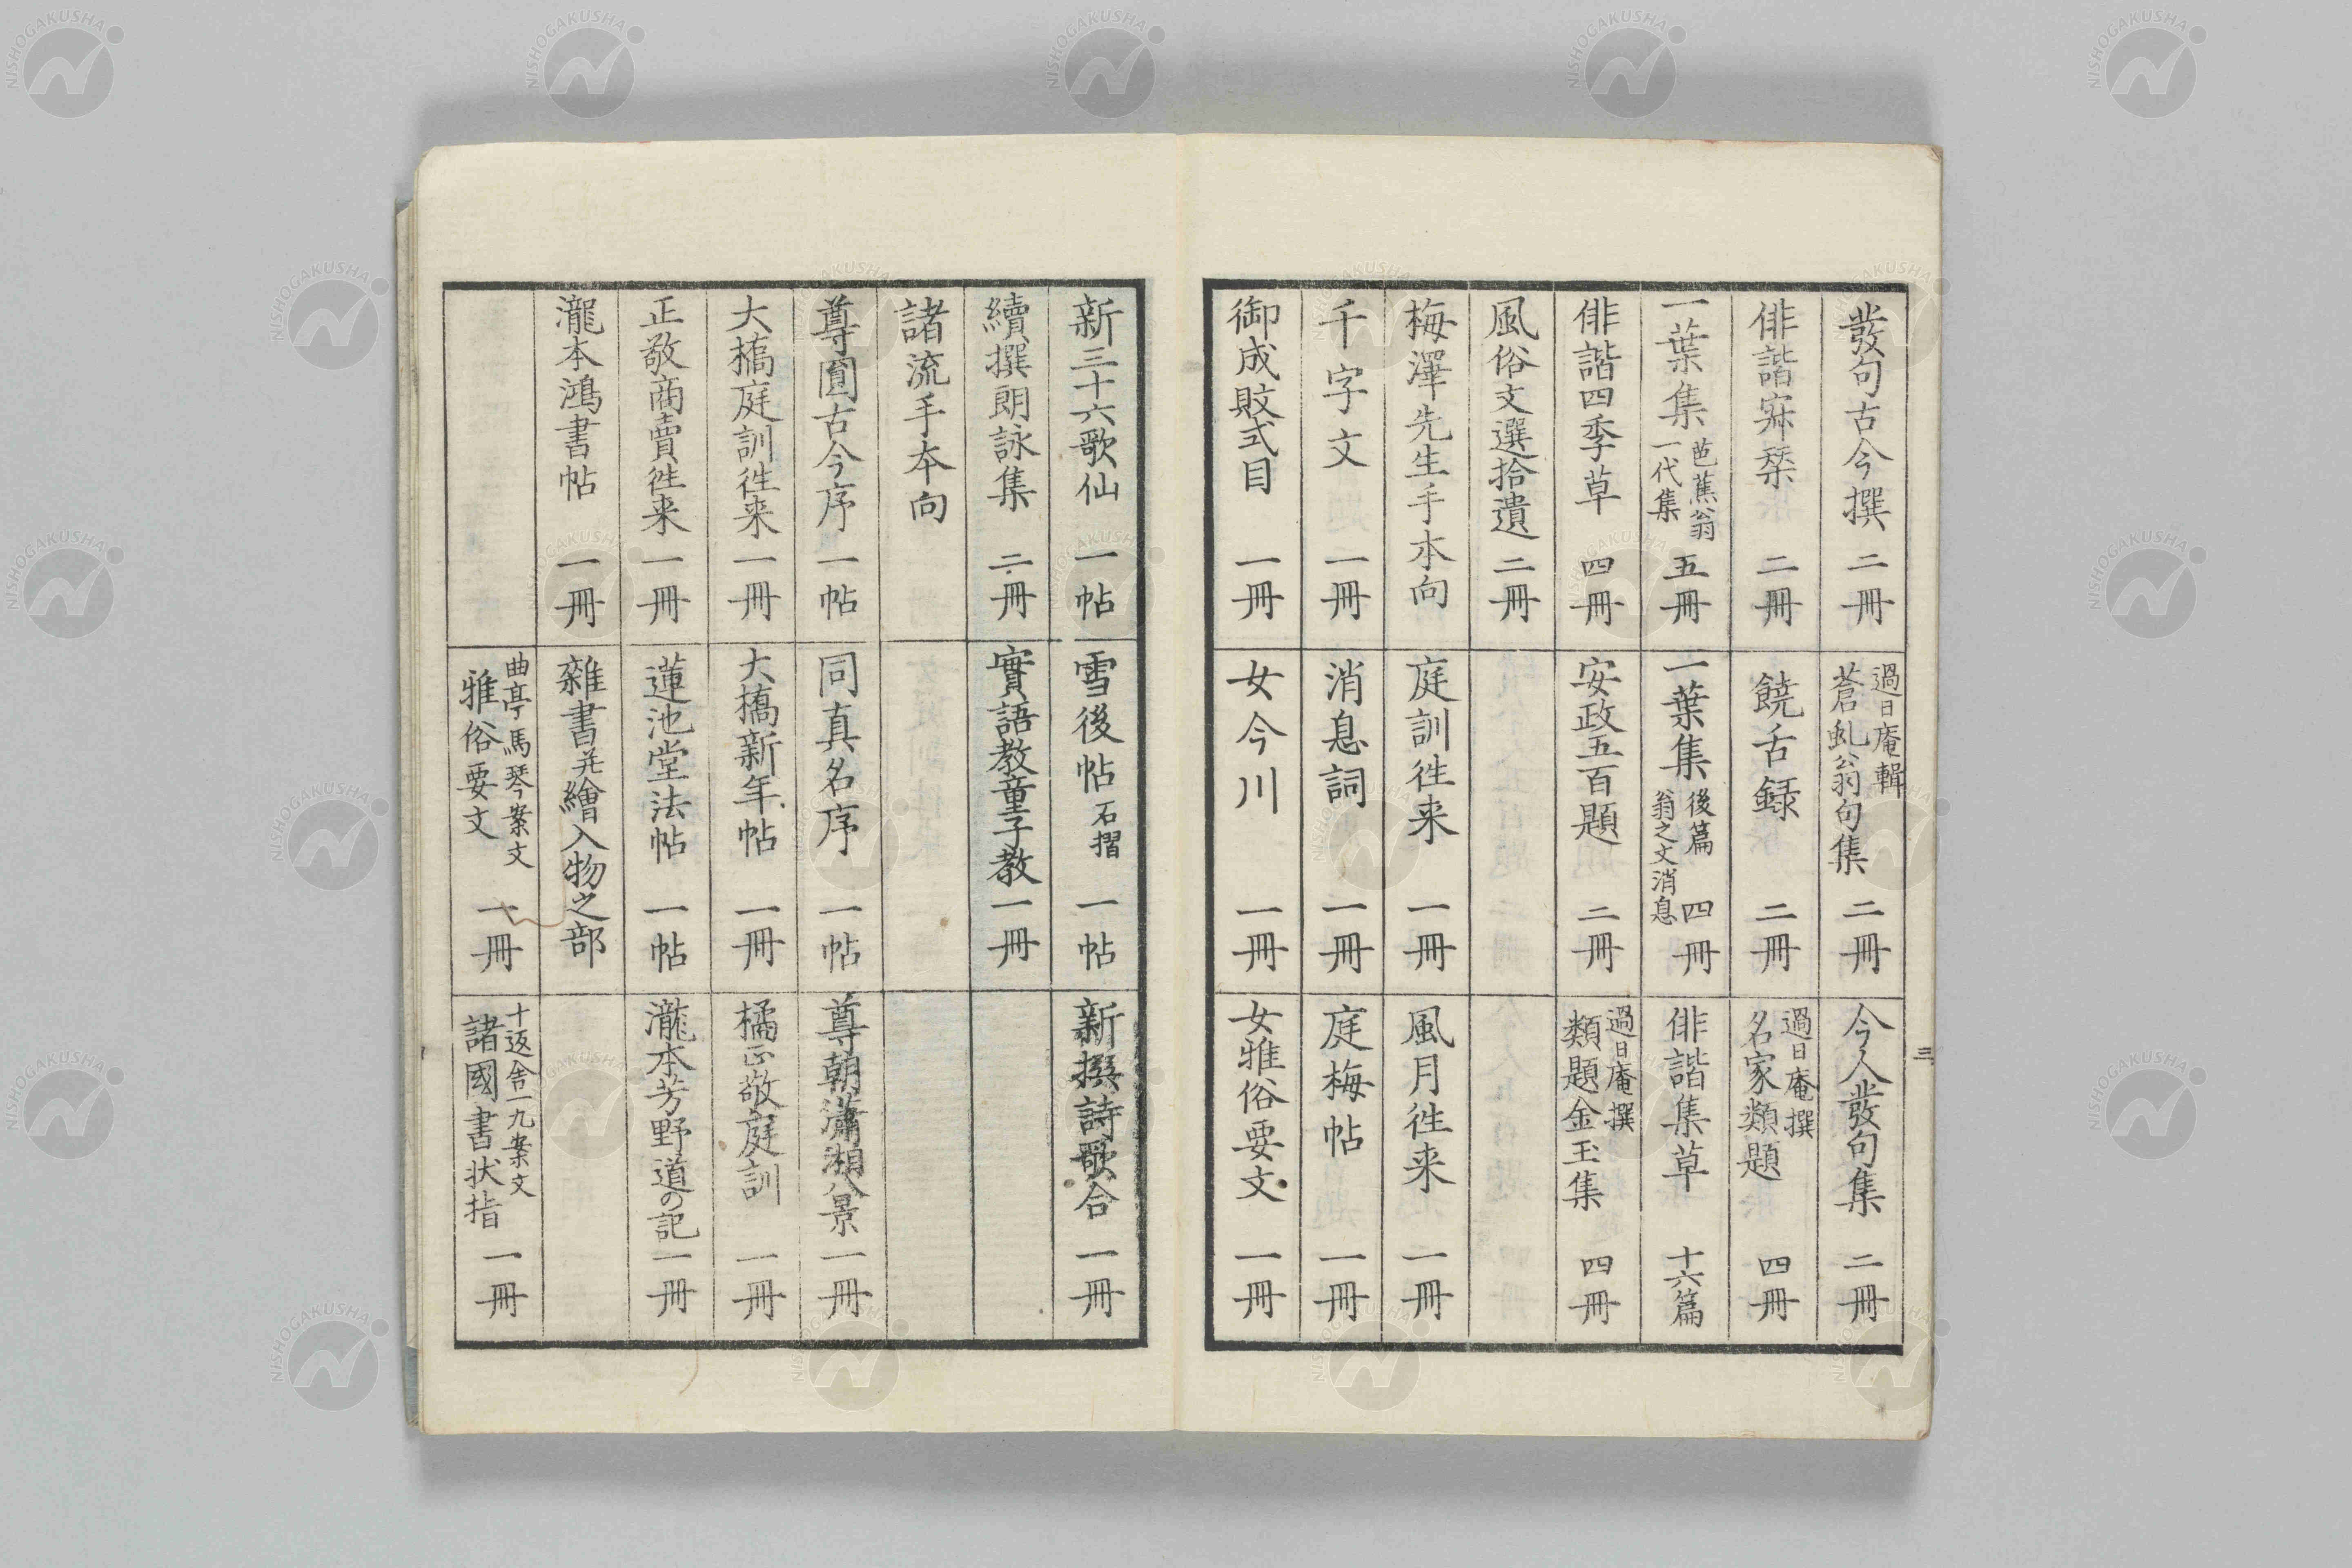 發句古今撰 二冊
過日庵輯 蒼虬翁句集 二冊
今人發句集 二冊
俳諧寂栞 二冊
饒舌録 二冊
過日庵撰 名家類題 四冊
一葉集 芭蕉翁一代集 五冊
一葉集 後篇 翁之文消息 四冊
俳諧集草 十六篇
俳諧四季草 四冊
安政五百題 二冊
過日庵撰 類題金玉集 四冊
風俗文選拾遺 二冊
梅澤先生手本向
庭訓徃来 一冊
風月徃来 一冊
千字文 一冊
消息詞 一冊
庭梅帖 一冊
御成敗式目 一冊
女今川 一冊
女雅俗要文 一冊
三
新三十六歌仙 一帖
雪後帖 石摺 一帖
新撰詩歌合 一冊
續撰朗詠集 二冊
實語教童子教 一冊
諸流手本向
尊圓古今序 一帖
同真名序 一帖
尊朝瀟湘八景 一冊
大橋庭訓徃来 一冊
大橋新年帖 一冊
橘正敬庭訓 一冊
正敬商賣徃来 一冊
蓮池堂法帖 一帖
瀧本芳野道の記 一冊
瀧本鴻書帖 一冊
雜書并繪入物之部
曲亭馬琴案文 雅俗要文 一冊
十返舎一九案文 諸國書状指 一冊
NISHOGAKUSHA